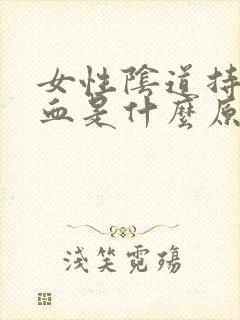 女性陰道持
血是什麼原
淺笑霓殤